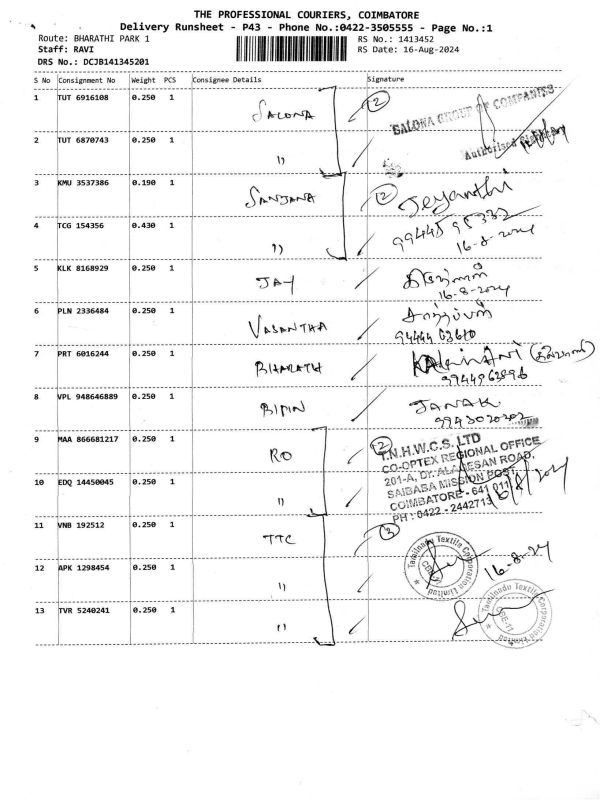 THE PROFESSIONAL COURIERS, COIMBATORE
Delivery Runsheet - P43 - Phone No.:0422-3505555 - Page No.:1
Route: BHARATHI PARK 1 RS No.: 1413452
Staff: RAVI RS Date: 16-Aug-2024
DRS No.: DCJB141345201
S No Consignment No Weight PCS Consignee Details Signature
1 TUT 6916108 0.250 1 SALONA 2 SALONA GROUP OF COMPANIES
2 TUT 6870743 0.250 1 " Authorised Signatory
3 KMU 3537386 0.190 1 SANJANA 2 Jeyanthi
4 TCG 154356 0.430 1 " 9944595332
16-8-2024
5 KLK 8168929 0.250 1 JAY
16-8-2024
6 PLN 2336484 0.250 1 VASANTHA
94444 63610
7 PRT 6016244 0.250 1 BHARATH
9744962896
8 VPL 948646889 0.250 1 BIPIN JANAK
9943020202
9 MAA 866681217 0.250 1 RO 2 T.N.H.W.C.S. LTD
CO-OPTEX REGIONAL OFFICE
201-A, Dr. ALAGESAN ROAD,
10 EDQ 14450045 0.250 1 " SAIBABA MISSION POST,
COIMBATORE - 641 011
PH : 0422 - 2442713
11 VNB 192512 0.250 1 TTC 3 Tamilnadu Textile Corporation Limited
CBE-11
16-8-24
12 APK 1298454 0.250 1 "
13 TVR 5240241 0.250 1 " Tamilnadu Textile Corporation Limited
CBE-11